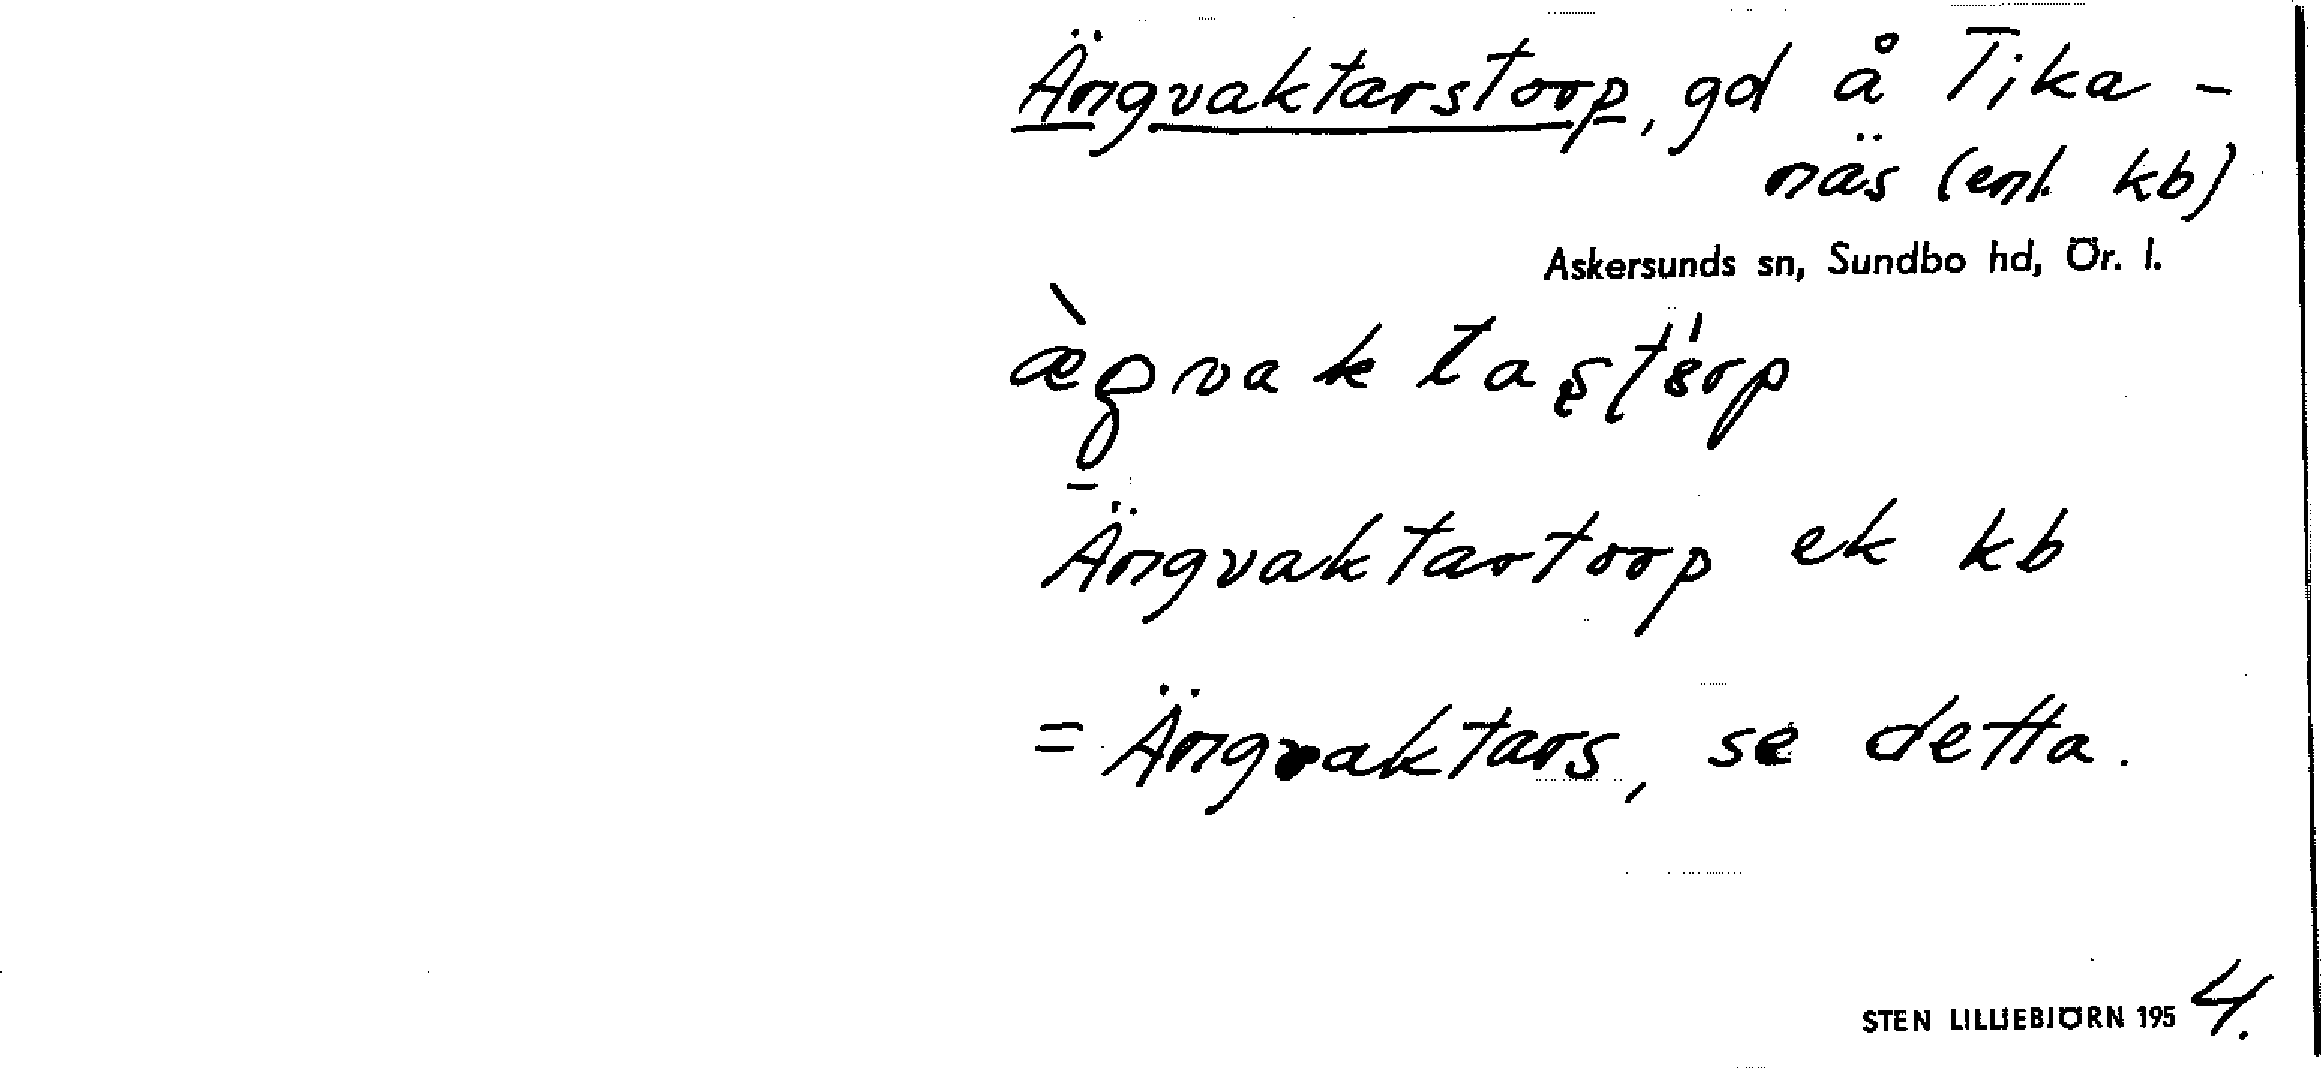 Ängvaktarstorp, gd å Tika-
näs (enl. kb)
Askersunds sn, Sundbo hd, Ör. l.
Ängvaktartorp ek kb
= Ängvaktars, se detta.
STEN LILLIEBJÖRN 1954.